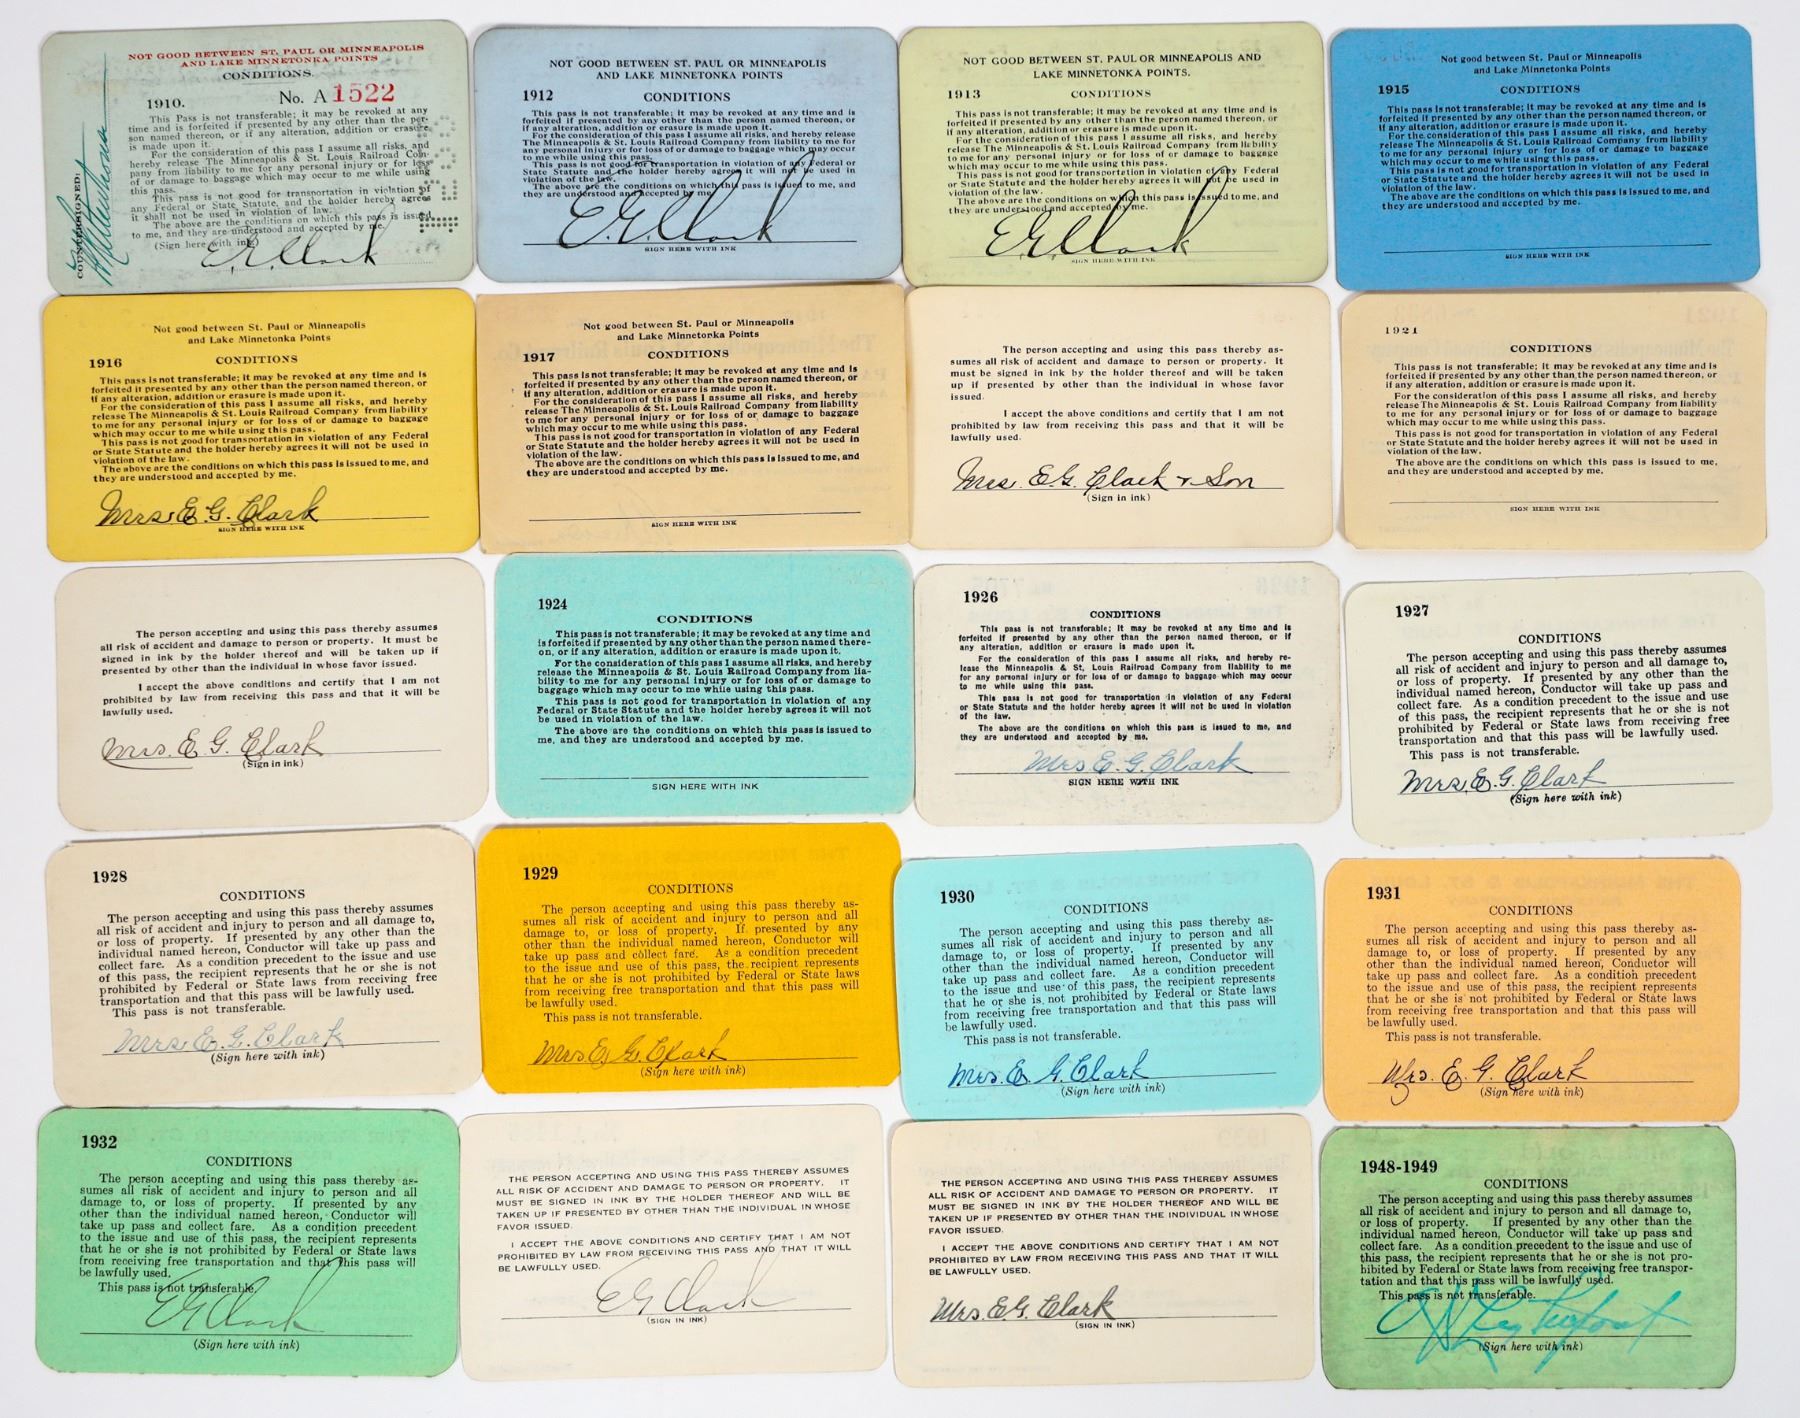 NOT GOOD BETWEEN ST. PAUL OR MINNEAPOLIS
AND LAKE MINNETONKA POINTS
CONDITIONS.
1910. No. A 1522
This Pass is not transferable; it may be revoked at any
time and is forfeited if presented by any other than the per-
son named thereon, or if any alteration, addition or erasure
is made upon it.
For the consideration of this pass I assume all risks, and
hereby release The Minneapolis & St. Louis Railroad Com-
pany from liability to me for any personal injury or for loss
of or damage to baggage which may occur to me while using
this pass.
This pass is not good for transportation in violation of
any Federal or State Statute, and the holder hereby agrees
it shall not be used in violation of law.
The above are the conditions on which this pass is issued
to me, and are understood and accepted by me.
(Sign here with ink)
E.G. Clark
COUNTERSIGNED:
NOT GOOD BETWEEN ST. PAUL OR MINNEAPOLIS
AND LAKE MINNETONKA POINTS
1912 CONDITIONS
This pass is not transferable; it may be revoked at any time and is
forfeited if presented by any other than the person named thereon, or
if any alteration, addition or erasure is made upon it.
For the consideration of this pass I assume all risks, and hereby release
The Minneapolis & St. Louis Railroad Company from liability to me for
any personal injury or for loss of or damage to baggage which may occur
to me while using this pass.
This pass is not good for transportation in violation of any Federal or
State Statute and the holder hereby agrees it will not be used in
violation of the law.
The above are the conditions on which this pass is issued to me, and
they are understood and accepted by me.
E.G. Clark
SIGN HERE WITH INK
NOT GOOD BETWEEN ST. PAUL OR MINNEAPOLIS AND
LAKE MINNETONKA POINTS.
1913 CONDITIONS
This pass is not transferable; it may be revoked at any time and is
forfeited if presented by any other than the person named thereon, or
if any alteration, addition or erasure is made upon it.
For the consideration of this pass I assume all risks, and hereby
release The Minneapolis & St. Louis Railroad Company from liability
to me for any personal injury or for loss of or damage to baggage
which may occur to me while using this pass.
This pass is not good for transportation in violation of any Federal
or State Statute and the holder hereby agrees it will not be used in
violation of the law.
The above are the conditions on which this pass is issued to me, and
they are understood and accepted by me.
E.G. Clark
SIGN HERE WITH INK
Not good between St. Paul or Minneapolis
and Lake Minnetonka Points
1915 CONDITIONS
This pass is not transferable; it may be revoked at any time and is
forfeited if presented by any other than the person named thereon, or
if any alteration, addition or erasure is made upon it.
For the consideration of this pass I assume all risks, and hereby
release The Minneapolis & St. Louis Railroad Company from liability
to me for any personal injury or for loss of or damage to baggage
which may occur to me while using this pass.
This pass is not good for transportation in violation of any Federal
or State Statute and the holder hereby agrees it will not be used in
violation of the law.
The above are the conditions on which this pass is issued to me, and
they are understood and accepted by me.
SIGN HERE WITH INK
Not good between St. Paul or Minneapolis
and Lake Minnetonka Points
1916 CONDITIONS
This pass is not transferable; it may be revoked at any time and is
forfeited if presented by any other than the person named thereon, or
if any alteration, addition or erasure is made upon it.
For the consideration of this pass I assume all risks, and hereby
release The Minneapolis & St. Louis Railroad Company from liability
to me for any personal injury or for loss of or damage to baggage
which may occur to me while using this pass.
This pass is not good for transportation in violation of any Federal
or State Statute and the holder hereby agrees it will not be used in
violation of the law.
The above are the conditions on which this pass is issued to me, and
they are understood and accepted by me.
Mrs E.G. Clark
SIGN HERE WITH INK
Not good between St. Paul or Minneapolis
and Lake Minnetonka Points
1917 CONDITIONS
This pass is not transferable; it may be revoked at any time and is
forfeited if presented by any other than the person named thereon, or
if any alteration, addition or erasure is made upon it.
For the consideration of this pass I assume all risks, and hereby
release The Minneapolis & St. Louis Railroad Company from liability
to me for any personal injury or for loss of or damage to baggage
which may occur to me while using this pass.
This pass is not good for transportation in violation of any Federal
or State Statute and the holder hereby agrees it will not be used in
violation of the law.
The above are the conditions on which this pass is issued to me, and
they are understood and accepted by me.
SIGN HERE WITH INK
The person accepting and using this pass thereby as-
sumes all risk of accident and damage to person or property. It
must be signed in ink by the holder thereof and will be taken
up if presented by other than the individual in whose favor
issued.
I accept the above conditions and certify that I am not
prohibited by law from receiving this pass and that it will be
lawfully used.
Mrs. E.G. Clark + Son
(Sign in ink)
1921
CONDITIONS
This pass is not transferable; it may be revoked at any time and is
forfeited if presented by any other than the person named thereon, or
if any alteration, addition or erasure is made upon it.
For the consideration of this pass I assume all risks, and hereby
release The Minneapolis & St. Louis Railroad Company from liability
to me for any personal injury or for loss of or damage to baggage
which may occur to me while using this pass.
This pass is not good for transportation in violation of any Federal
or State Statute and the holder hereby agrees it will not be used in
violation of the law.
The above are the conditions on which this pass is issued to me,
and they are understood and accepted by me.
SIGN HERE WITH INK
The person accepting and using this pass thereby assumes
all risk of accident and damage to person or property. It must be
signed in ink by the holder thereof and will be taken up if
presented by other than the individual in whose favor issued.
I accept the above conditions and certify that I am not
prohibited by law from receiving this pass and that it will be
lawfully used.
Mrs. E.G. Clark
(Sign in ink)
1924
CONDITIONS
This pass is not transferable; it may be revoked at any time and
is forfeited if presented by any other than the person named there-
on, or if any alteration, addition or erasure is made upon it.
For the consideration of this pass I assume all risks, and hereby
release the Minneapolis & St. Louis Railroad Company from lia-
bility to me for any personal injury or for loss of or damage to
baggage which may occur to me while using this pass.
This pass is not good for transportation in violation of any
Federal or State Statute and the holder hereby agrees it will not
be used in violation of the law.
The above are the conditions on which this pass is issued to
me, and they are understood and accepted by me.
SIGN HERE WITH INK
1926
CONDITIONS
This pass is not transferable; it may be revoked at any time and is
forfeited if presented by any other than the person named thereon, or if
any alteration, addition or erasure is made upon it.
For the consideration of this pass I assume all risks, and hereby re-
lease the Minneapolis & St. Louis Railroad Company from liability to me
for any personal injury or for loss of or damage to baggage which may occur
to me while using this pass.
This pass is not good for transportation in violation of any Federal
or State Statute and the holder hereby agrees it will not be used in violation
of the law.
The above are the conditions on which this pass is issued to me, and
they are understood and accepted by me.
Mrs E.G. Clark
SIGN HERE WITH INK
1927
CONDITIONS
The person accepting and using this pass thereby assumes
all risk of accident and injury to person and all damage to,
or loss of property. If presented by any other than the
individual named hereon, Conductor will take up pass and
collect fare. As a condition precedent to the issue and use
of this pass, the recipient represents that he or she is not
prohibited by Federal or State laws from receiving free
transportation and that this pass will be lawfully used.
This pass is not transferable.
Mrs. E.G. Clark
(Sign here with ink)
1928
CONDITIONS
The person accepting and using this pass thereby assumes
all risk of accident and injury to person and all damage to,
or loss of property. If presented by any other than the
individual named hereon, Conductor will take up pass and
collect fare. As a condition precedent to the issue and use
of this pass, the recipient represents that he or she is not
prohibited by Federal or State laws from receiving free
transportation and that this pass will be lawfully used.
This pass is not transferable.
Mrs E.G. Clark
(Sign here with ink)
1929
CONDITIONS
The person accepting and using this pass thereby as-
sumes all risk of accident and injury to person and all
damage to, or loss of property. If presented by any
other than the individual named hereon, Conductor will
take up pass and collect fare. As a condition precedent
to the issue and use of this pass, the recipient represents
that he or she is not prohibited by Federal or State laws
from receiving free transportation and that this pass will
be lawfully used.
This pass is not transferable.
Mrs E.G. Clark
(Sign here with ink)
1930
CONDITIONS
The person accepting and using this pass thereby as-
sumes all risk of accident and injury to person and all
damage to, or loss of property. If presented by any
other than the individual named hereon, Conductor will
take up pass and collect fare. As a condition precedent
to the issue and use of this pass, the recipient represents
that he or she is not prohibited by Federal or State laws
from receiving free transportation and that this pass will
be lawfully used.
This pass is not transferable.
Mrs. E.G. Clark
(Sign here with ink)
1931
CONDITIONS
The person accepting and using this pass thereby as-
sumes all risk of accident and injury to person and all
damage to, or loss of property. If presented by any
other than the individual named hereon, Conductor will
take up pass and collect fare. As a condition precedent
to the issue and use of this pass, the recipient represents
that he or she is not prohibited by Federal or State laws
from receiving free transportation and that this pass will
be lawfully used.
This pass is not transferable.
Mrs. E.G. Clark
(Sign here with ink)
1932
CONDITIONS
The person accepting and using this pass thereby as-
sumes all risk of accident and injury to person and all
damage to, or loss of property. If presented by any
other than the individual named hereon, Conductor will
take up pass and collect fare. As a condition precedent
to the issue and use of this pass, the recipient represents
that he or she is not prohibited by Federal or State laws
from receiving free transportation and that this pass will
be lawfully used.
This pass is not transferable.
E G Clark
(Sign here with ink)
THE PERSON ACCEPTING AND USING THIS PASS THEREBY ASSUMES
ALL RISK OF ACCIDENT AND DAMAGE TO PERSON OR PROPERTY. IT
MUST BE SIGNED IN INK BY THE HOLDER THEREOF AND WILL BE
TAKEN UP IF PRESENTED BY OTHER THAN THE INDIVIDUAL IN WHOSE
FAVOR ISSUED.
I ACCEPT THE ABOVE CONDITIONS AND CERTIFY THAT I AM NOT
PROHIBITED BY LAW FROM RECEIVING THIS PASS AND THAT IT WILL
BE LAWFULLY USED.
E G Clark
(SIGN IN INK)
THE PERSON ACCEPTING AND USING THIS PASS THEREBY ASSUMES
ALL RISK OF ACCIDENT AND DAMAGE TO PERSON OR PROPERTY. IT
MUST BE SIGNED IN INK BY THE HOLDER THEREOF AND WILL BE
TAKEN UP IF PRESENTED BY OTHER THAN THE INDIVIDUAL IN WHOSE
FAVOR ISSUED.
I ACCEPT THE ABOVE CONDITIONS AND CERTIFY THAT I AM NOT
PROHIBITED BY LAW FROM RECEIVING THIS PASS AND THAT IT WILL
BE LAWFULLY USED.
Mrs. E.G. Clark
(SIGN IN INK)
1948-1949
CONDITIONS
The person accepting and using this pass thereby assumes
all risk of accident and injury to person and all damage to,
or loss of property. If presented by any other than the
individual named hereon, Conductor will take up pass and
collect fare. As a condition precedent to the issue and use of
this pass, the recipient represents that he or she is not pro-
hibited by Federal or State laws from receiving free transpor-
tation and that this pass will be lawfully used.
This pass is not transferable.
(Sign here with ink)